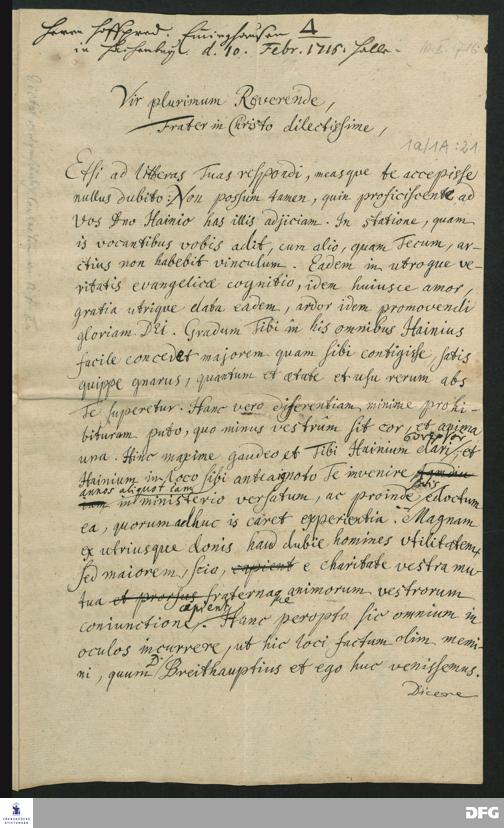 Herrn Hoffpred. Eminghausen Δ
in d. 10. Febr. 1716. Halle.
Vir plurimum Reverende,
Frater in Christo dilectissime,
1a/1A:21
Etsi ad litteras Tuas respondi, measque te accepisse
nullus dubito: Non possum tamen, quin proficiscente ad
vos Dno Hainio has illis adjiciam. In statione, quam
is vocantibus vobis adit, cum alio, quam Tecum, ar-
ctius non habebit vinculum. Eadem in utroque ve-
ritatis evangelicæ cognitio, idem huiusce amor,
gratia utrique data eadem, ardor idem promovendi
gloriam DEI. Gradum Tibi in his omnibus Hainius
facile concedet majorem quam sibi contigisse, satis
quippe gnarus, quantum et ætate et usu rerum abs
Te superetur. Hanc vero differentiam minime prohi-
bituram puto, quo minus vestrûm sit cor, et anima
una. Hinc maxime gaudeo et Tibi Hainium dari, et
Hainium in loco sibi antea ignoto Te invenire
annos aliquot iam in ministerio versatum, ac proinde edoctum
ea, quorum adhuc is caret experientia. Magnam
ex utriusque donis haud dubie homines utilitatem,
sed maiorem, scio, capient e charitate vestra mu-
tua et prorsus fraternaque animorum vestrorum
coniunctione capient. Hanc peropto sic omnium in
oculos incurrere, ut hic loci factum olim memi-
ni, quum D. Breithauptius et ego huc venissemus.
Dicere
FRANCKESCHE STIFTUNGEN
DFG